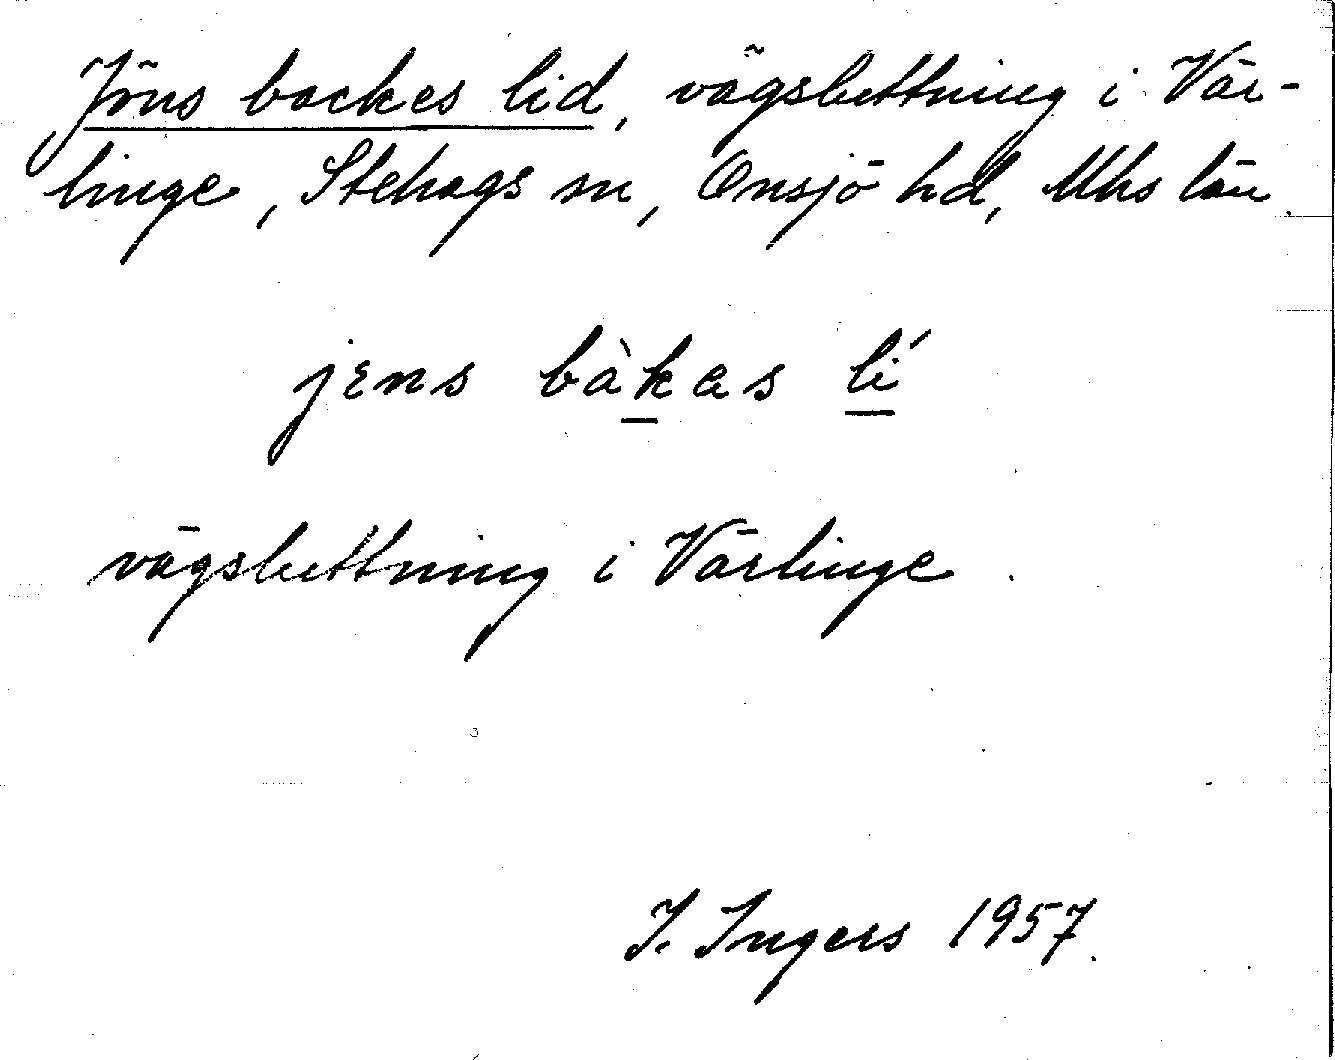 Jöns backes lid, vägsluttning i Vär-
linge, Stehags sn, Onsjö hd, Mhs län.
jens bàkas lí
vägsluttning i Värlinge.
I. Ingers 1957.